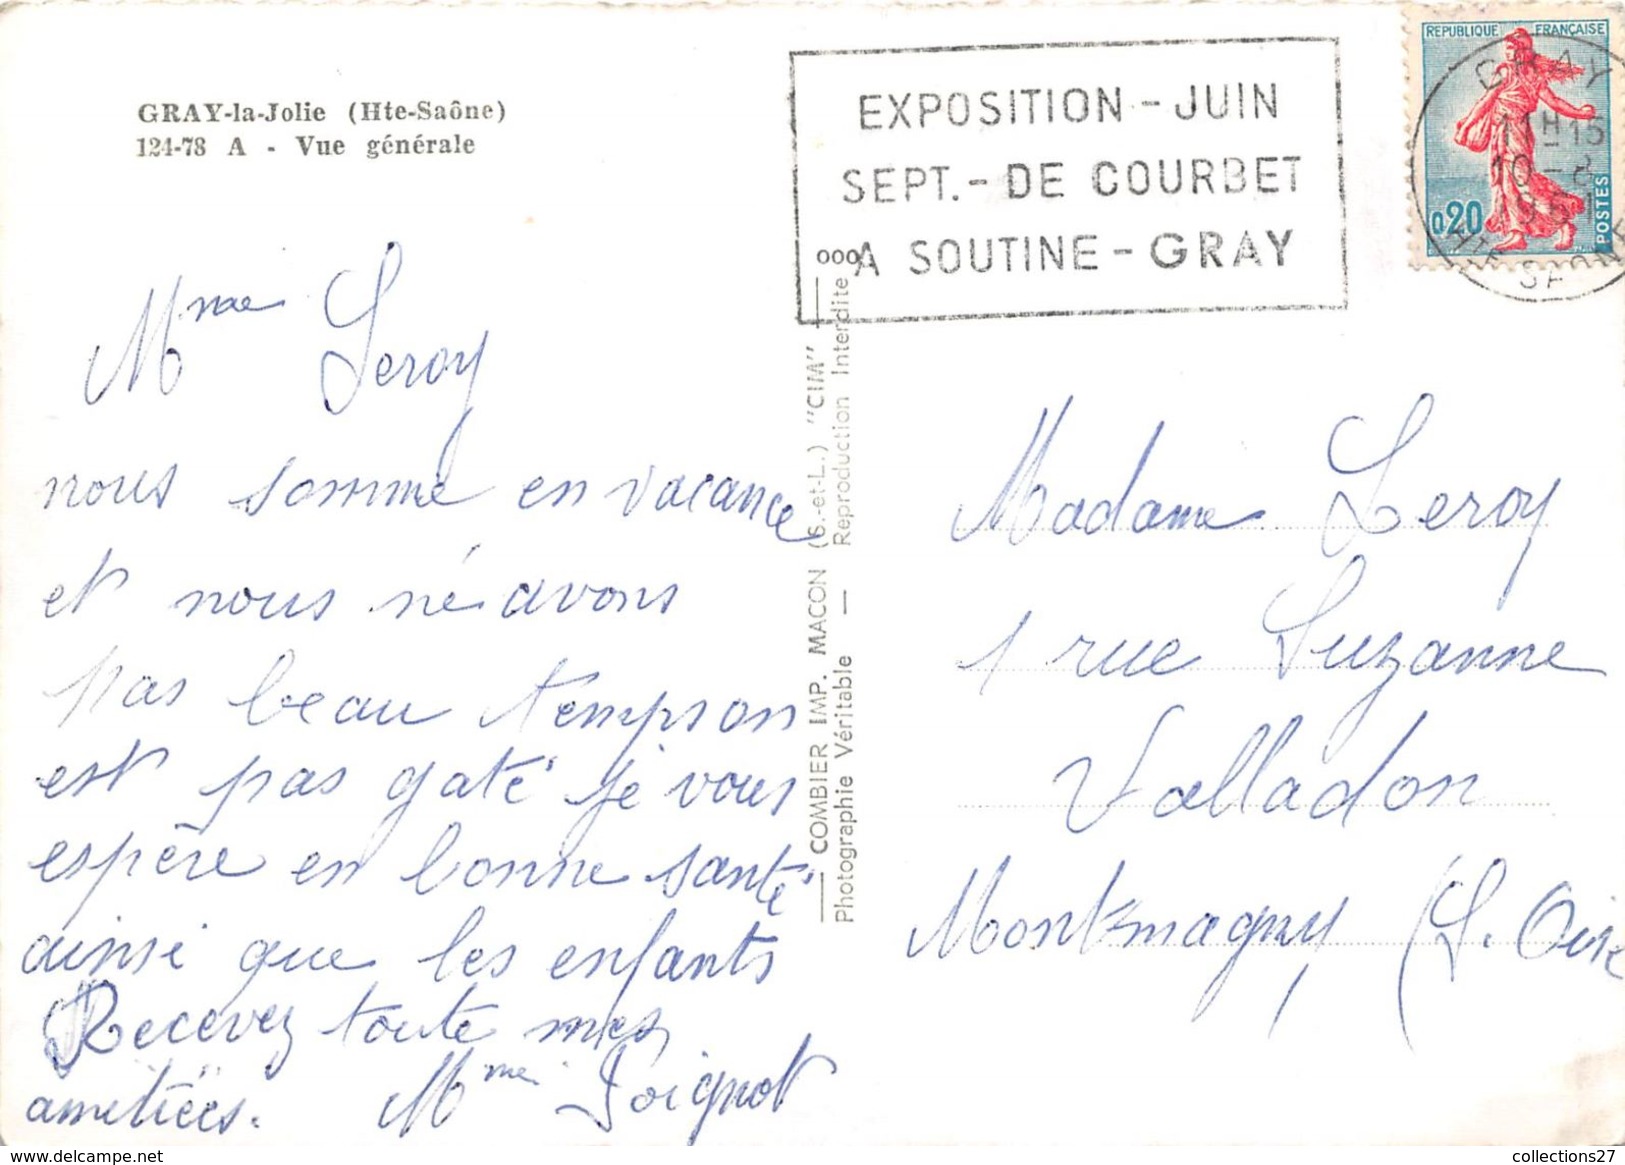 GRAY-la-Jolie (Hte-Saône)
124-78 A - Vue générale
EXPOSITION - JUIN
SEPT. - DE COURBET
A SOUTINE - GRAY
REPUBLIQUE FRANÇAISE
0,20
POSTES
GRAY
11H15
10-8
1961
HTE SAONE
Mme Leroy
nous somme en vacance
et nous né avons
pas beau tempson
est pas gaté je vous
espère en bonne santé
ainsi que les enfants
Recevez toute mes
amitiées. Mme Loignot
— COMBIER IMP. MACON (S.-et-L.) "CIM" —
Photographie Véritable — Reproduction Interdite
ooo
Madame Leroy
1 rue Suzanne
Valladon
Montmagny (S. Oise
collections27